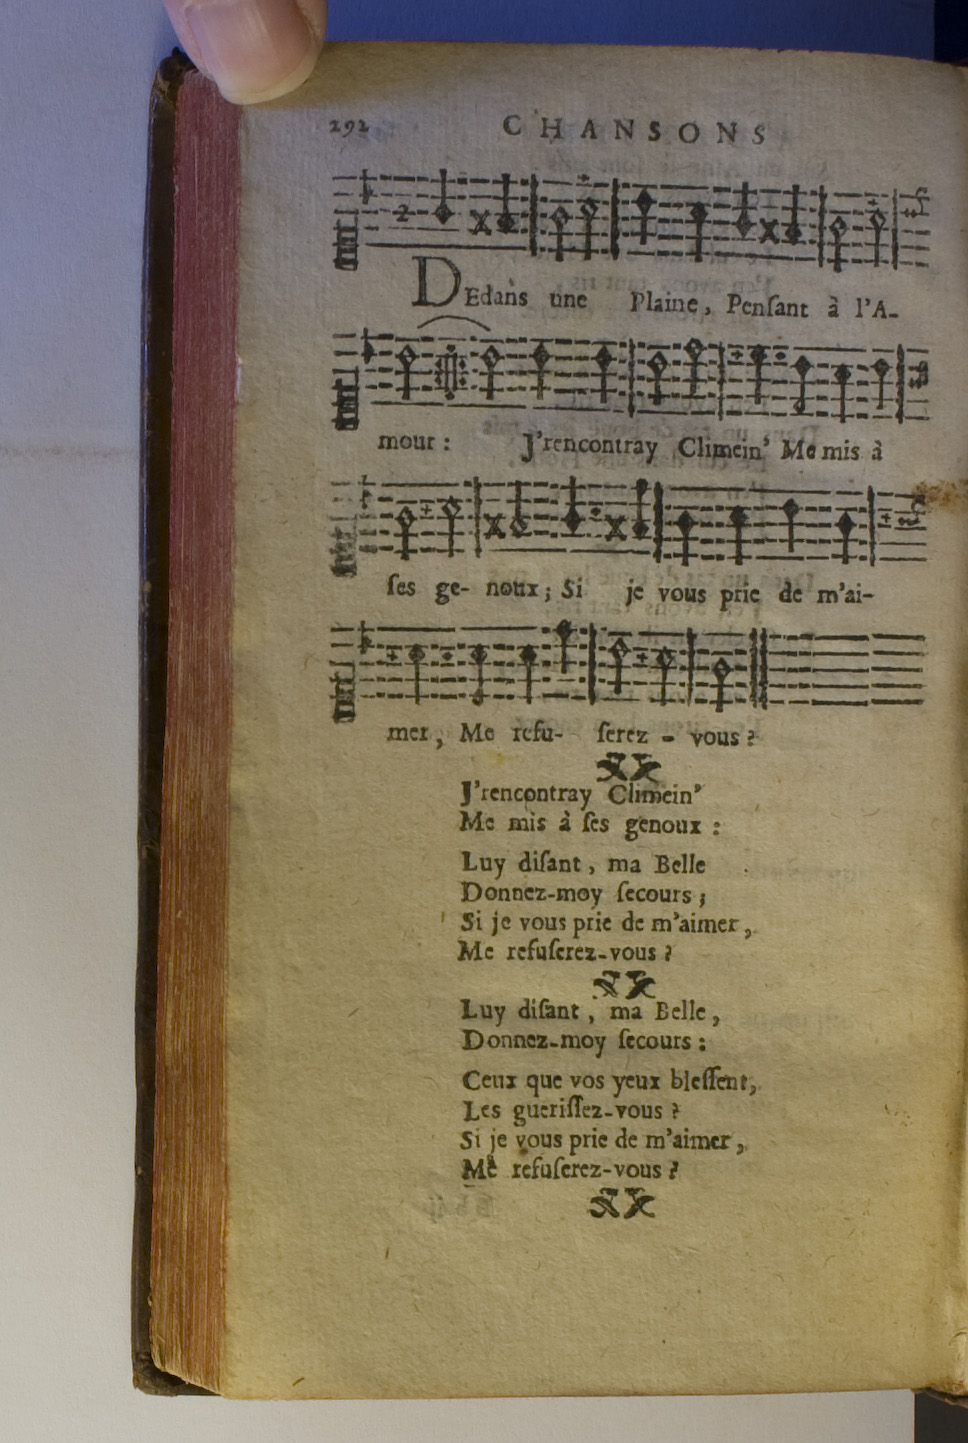 292 CHANSONS
2
DEdans une Plaine, Penſant à l'A-
mour : J'rencontray Climein' Me mis à
ſes ge- noux ; Si je vous prie de m'ai-
mer, Me refu- ſerez - vous ?
J'rencontray Climein'
Me mis à ſes genoux :
Luy diſant, ma Belle
Donnez-moy ſecours ;
Si je vous prie de m'aimer,
Me refuſerez-vous ?
Luy diſant, ma Belle,
Donnez-moy ſecours :
Ceux que vos yeux bleſſent,
Les gueriſſez-vous ?
Si je vous prie de m'aimer,
Me refuſerez-vous ?